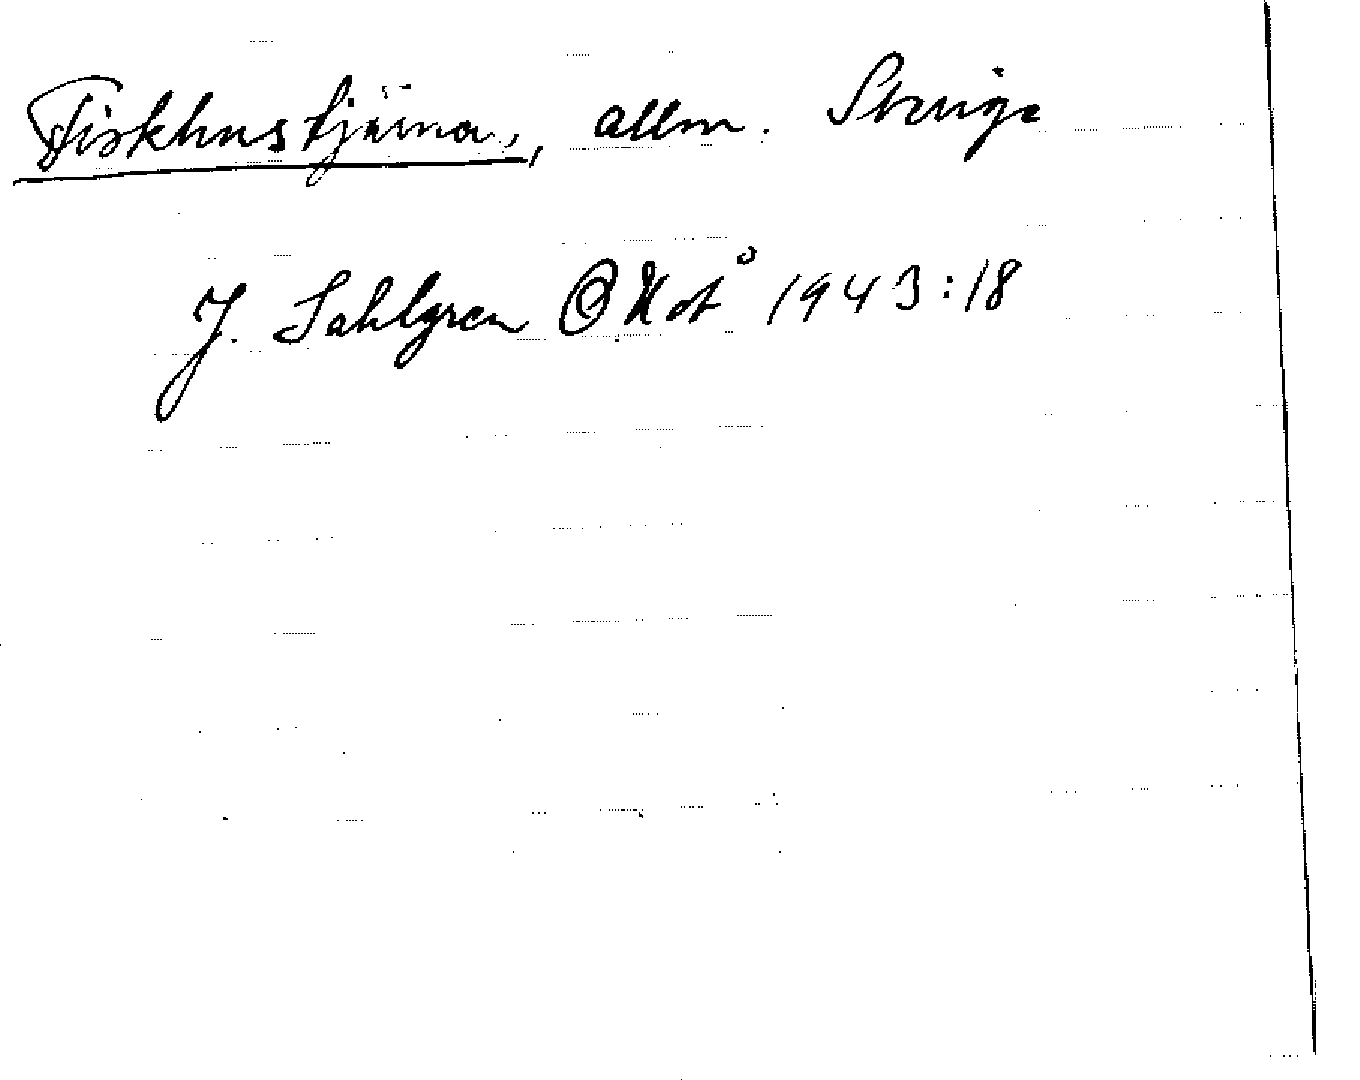 Fiskhustjärna, allm. Sverige
J. Sahlgren 1943:18